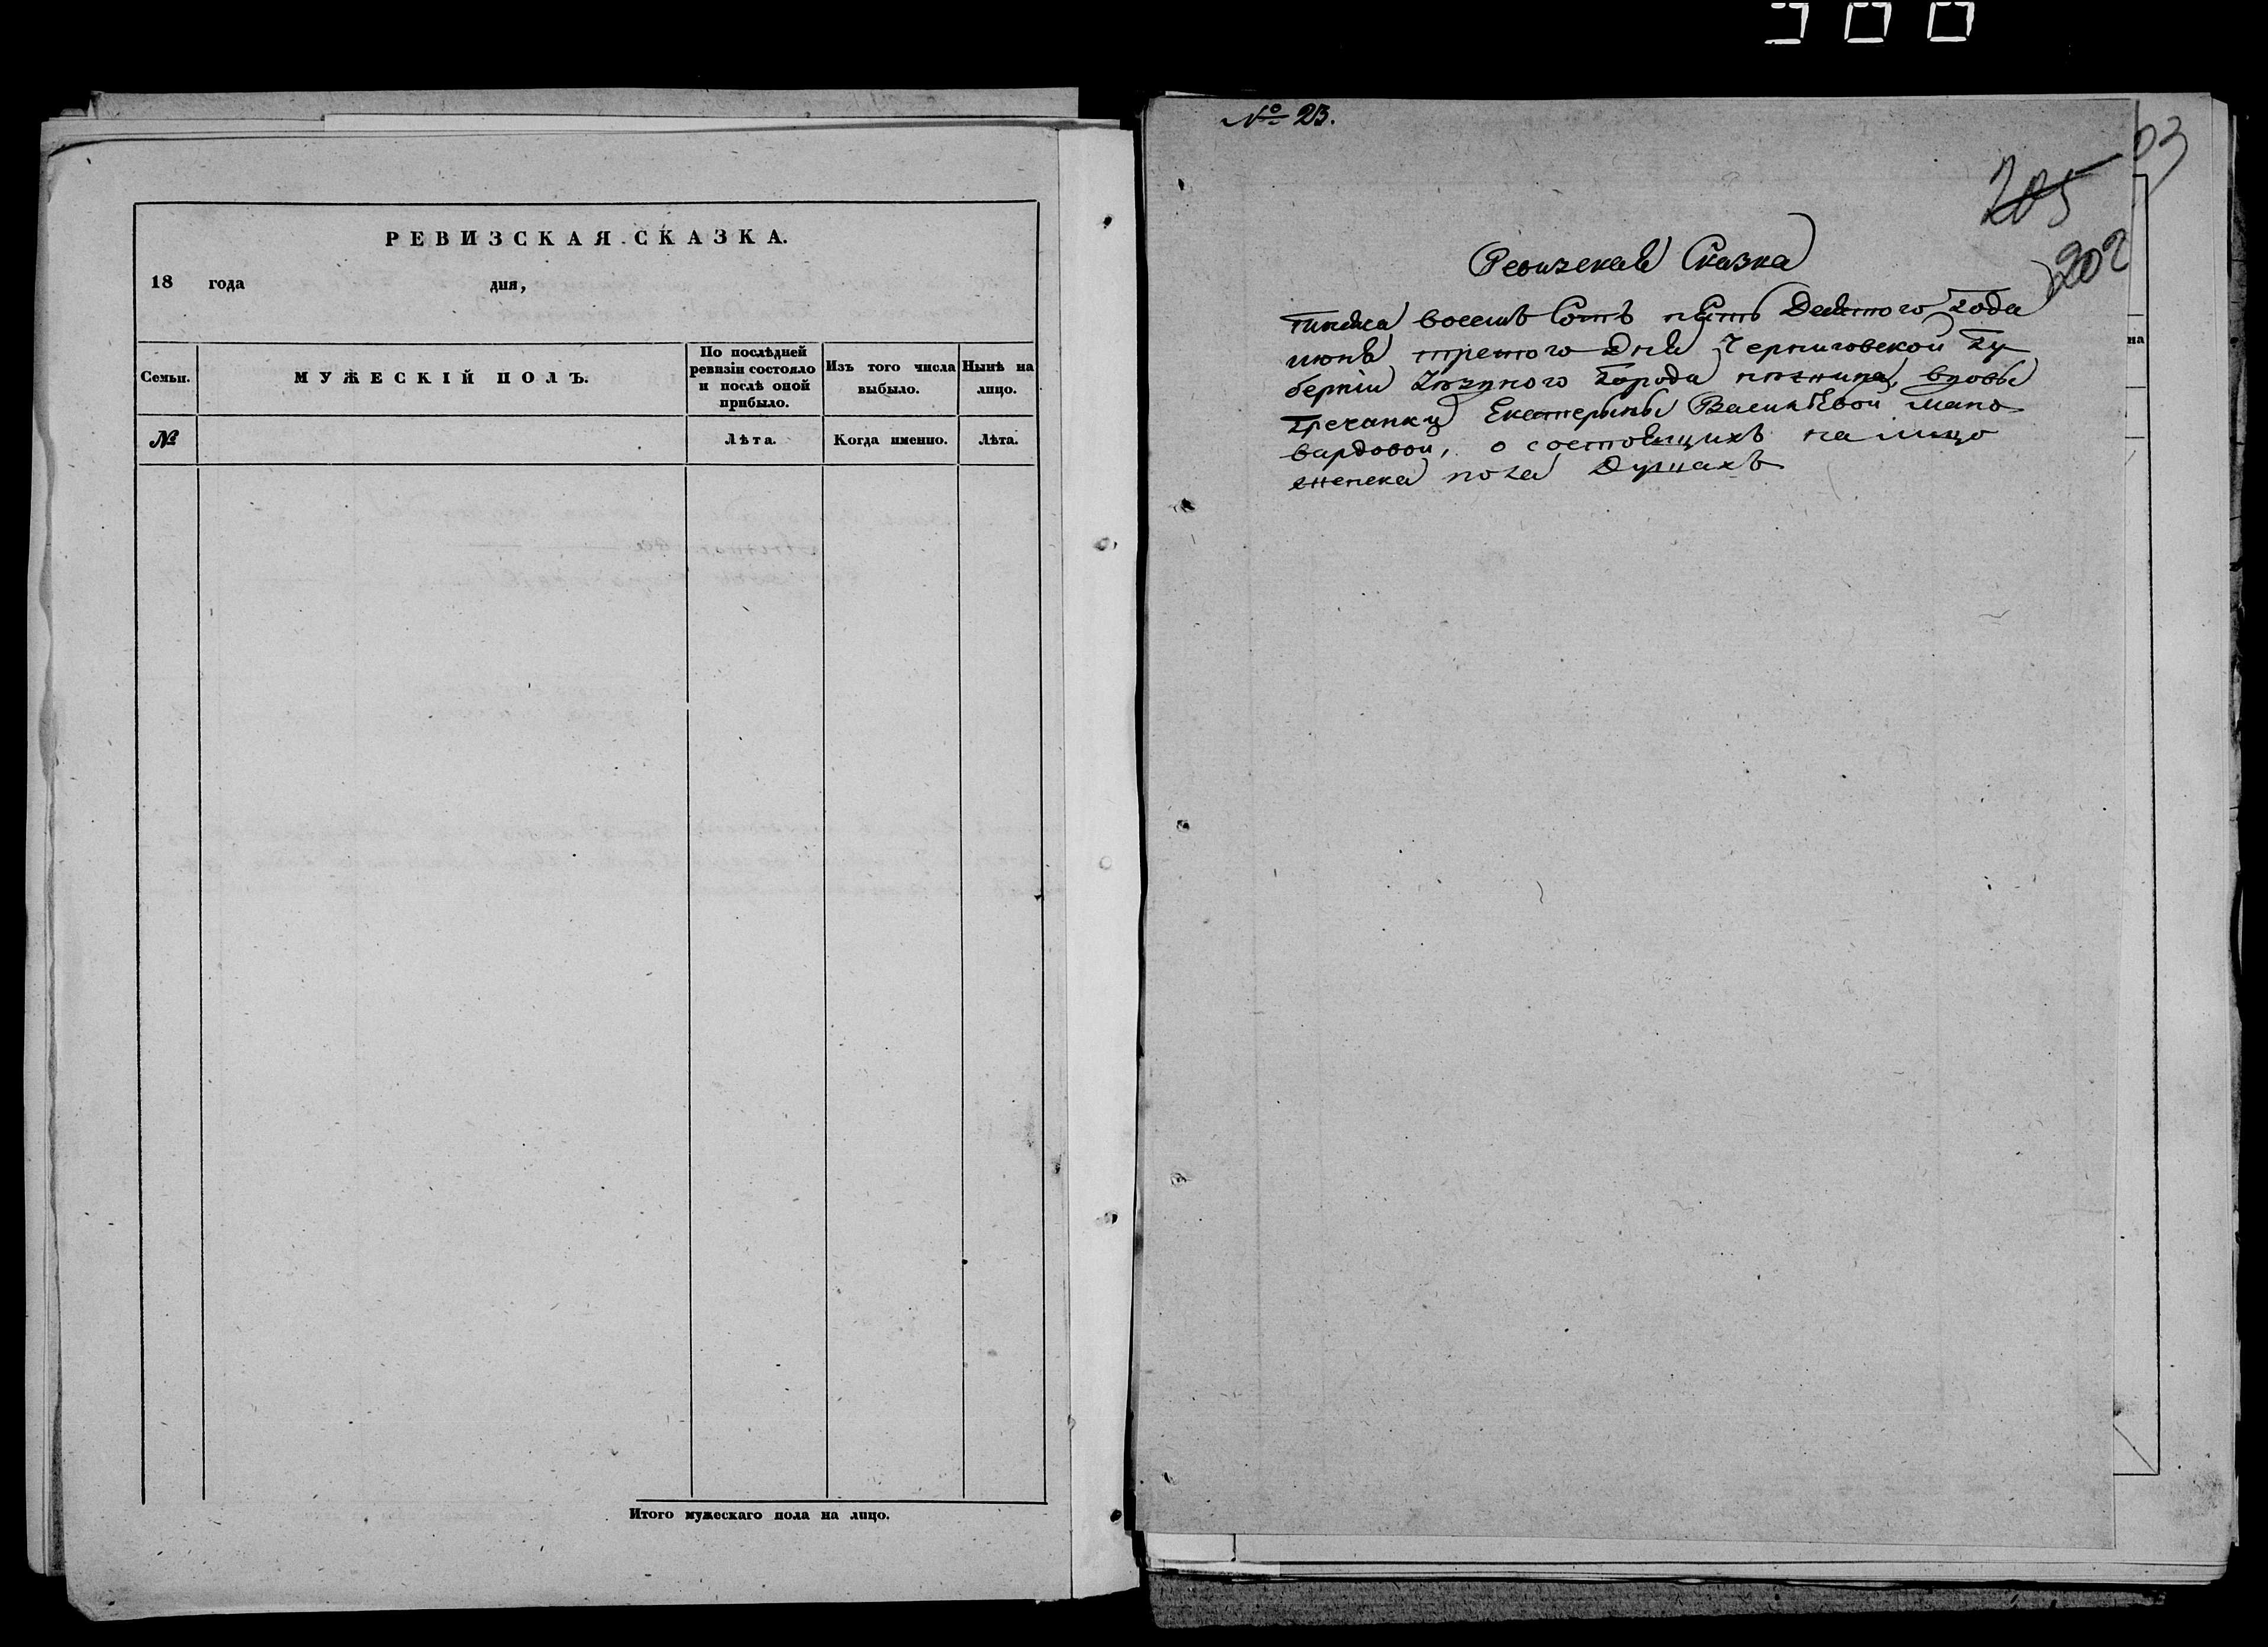 РЕВИЗСКАЯ СКАЗКА.
18 года дня,
Семьи.
МУЖЕСКІЙ ПОЛЪ.
По послѣдней
ревизіи состояло
и послѣ оной
прибыло.
Изъ того числа
выбыло.
Нынѣ на
лицо.
№
Лѣта.
Когда именно.
Лѣта.
Итого мужескаго пола на лицо.
№ 23.
03
205
202
на
Ревизская Сказка
тисяча восемъ Сотъ пять Десятого года
июня третого Дня Черниговской гу
берніи города нѣжина, вдовы
гречанки Екатерыны Васильевой Мано
вардовой, о состоящихъ на лицо
женска пола Душахъ